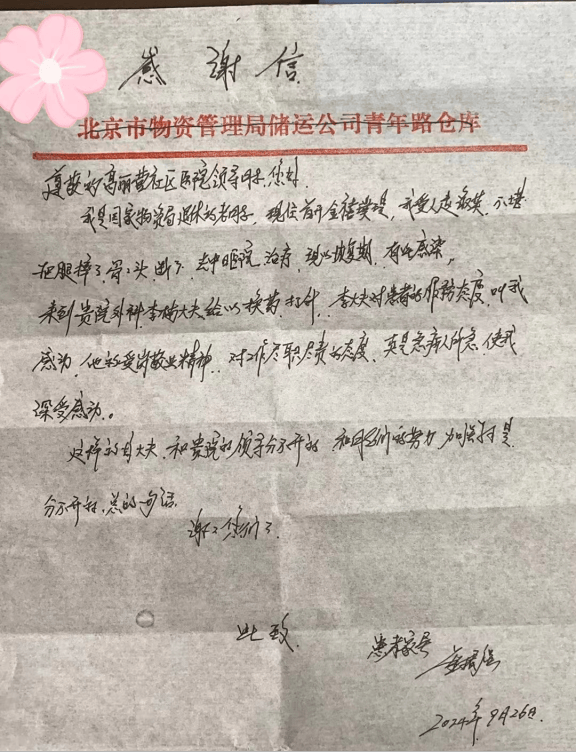 感谢信
北京市物资管理局储运公司青年路仓库
尊敬的高丽营社区医院领导同志您好
我是国家物资局退休的老同志，现住首开金禧璞瑅，我爱人走
把腿摔了，骨头断了，去中医院治疗，现以恢复期，有些感染，
来到贵院外科，李 大夫给以换药，打针，李大夫对患者的服务态度，叫我
感动，他的爱岗敬业精神，对工作尽职尽责的态度，真是急病人所急，使我
深受感动。
这样的好大夫，和贵院的领导分不开的，和同的努力
分不开的，总的一句话，
谢谢您们了
此致
患者家属
2024年9月26日